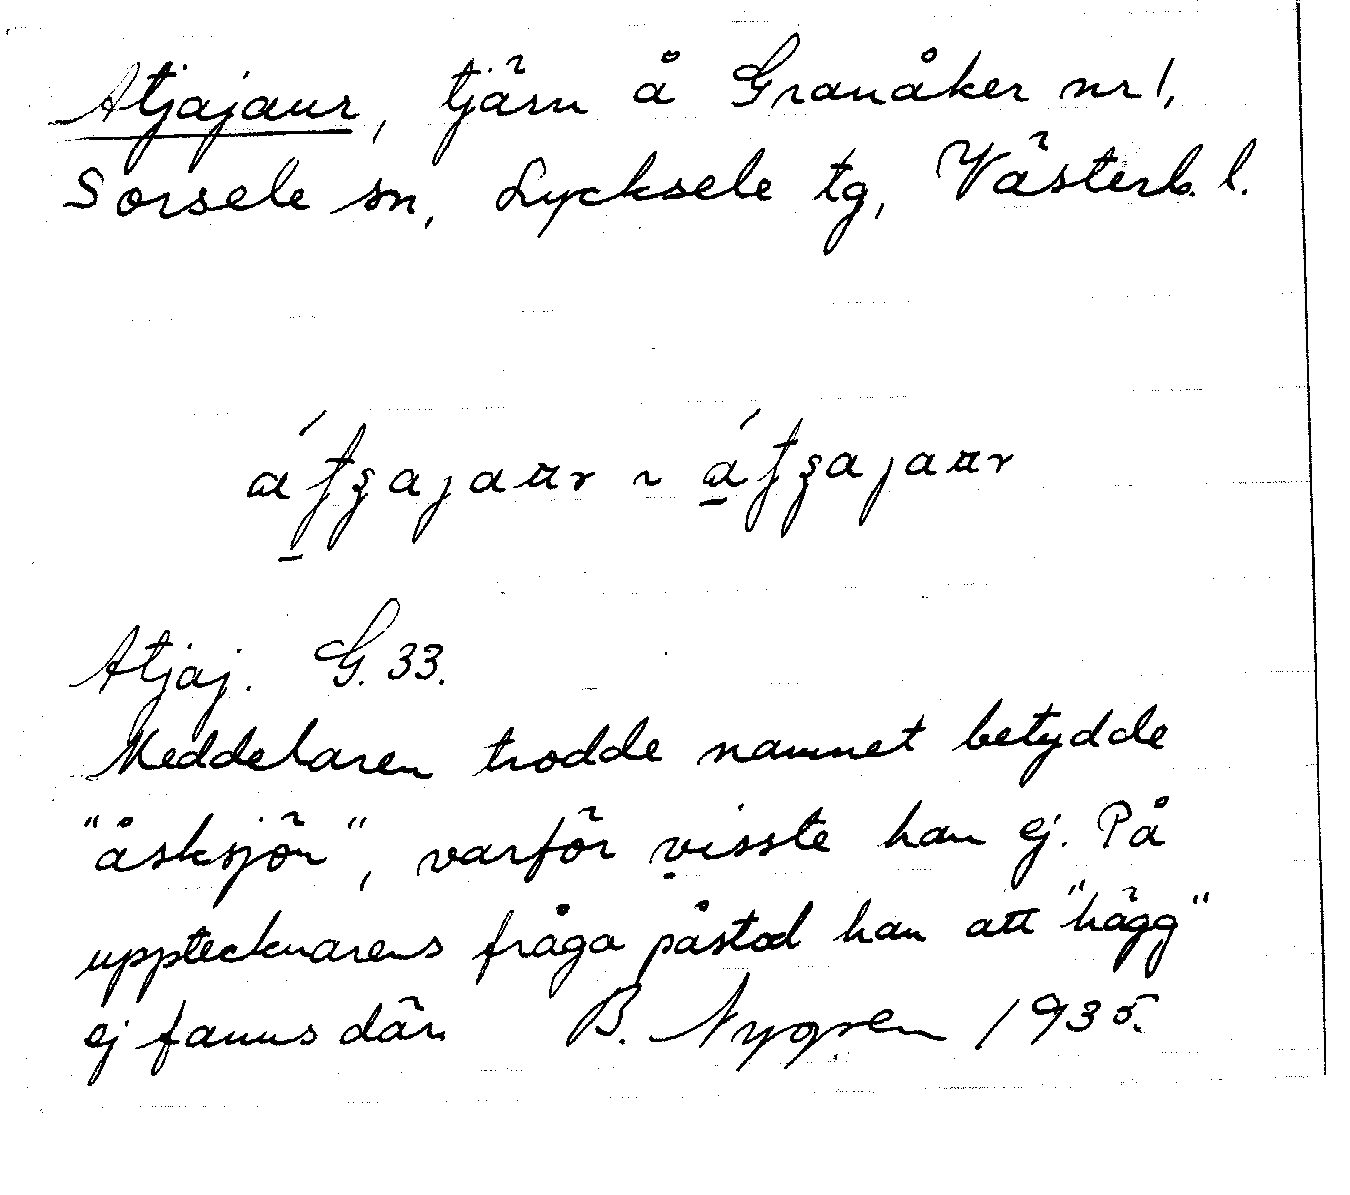 Atjajaur, tjärn å Granåker nr 1,
Sorsele sn, Lycksele tg, Västerb. l.
Atjaj. G. 33.
Meddelaren trodde namnet betydde
"åsksjön", varför visste han ej. På
upptecknarens fråga påstod han att "hägg"
ej fanns där. B. Nygren 1935.